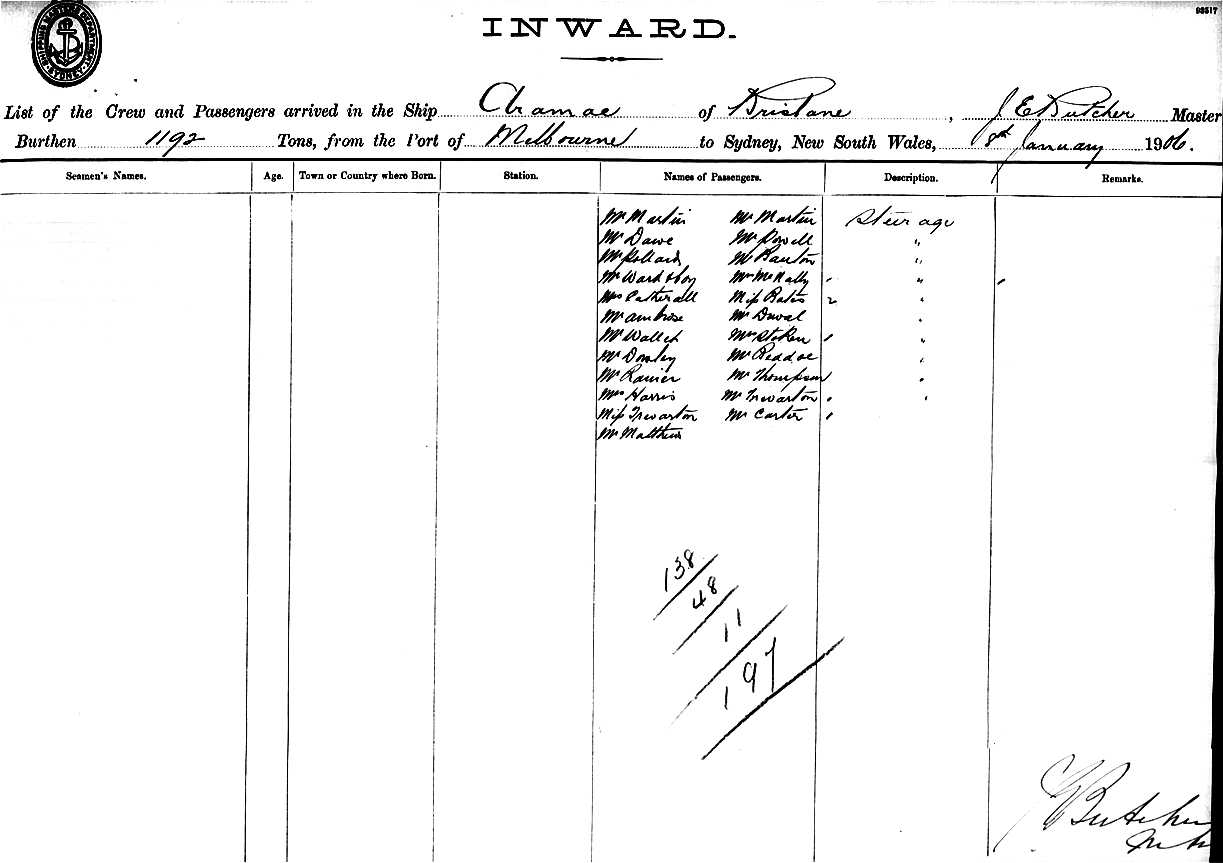 93517
SHIPPING MASTER'S DEPARTMENT SYDNEY
INWARD.
List of the Crew and Passengers arrived in the Ship Aramac of Brisbane, J E Butcher Master
Burthen 1192 Tons, from the Port of Melbourne to Sydney, New South Wales, 8th January 1906.
Seamen's Names. Age. Town or Country where Born. Station. Names of Passengers. Description. Remarks.
Mr Martin Mr Martin Steerage
Mr Dawe Mr Powell "
Mr Pollard Mr "
Mr Ward & boy Mrs McNally "
Mrs Catherall Miss Bates 2 "
Mr Ambrose Mr Duval "
Mr Mrs "
Mr Mr "
Mr Mr Thompson "
Mrs Harris Mr Trevarton "
Miss Trevarton Mr Carter
Mr Matthews
138
48
11
197
Butcher